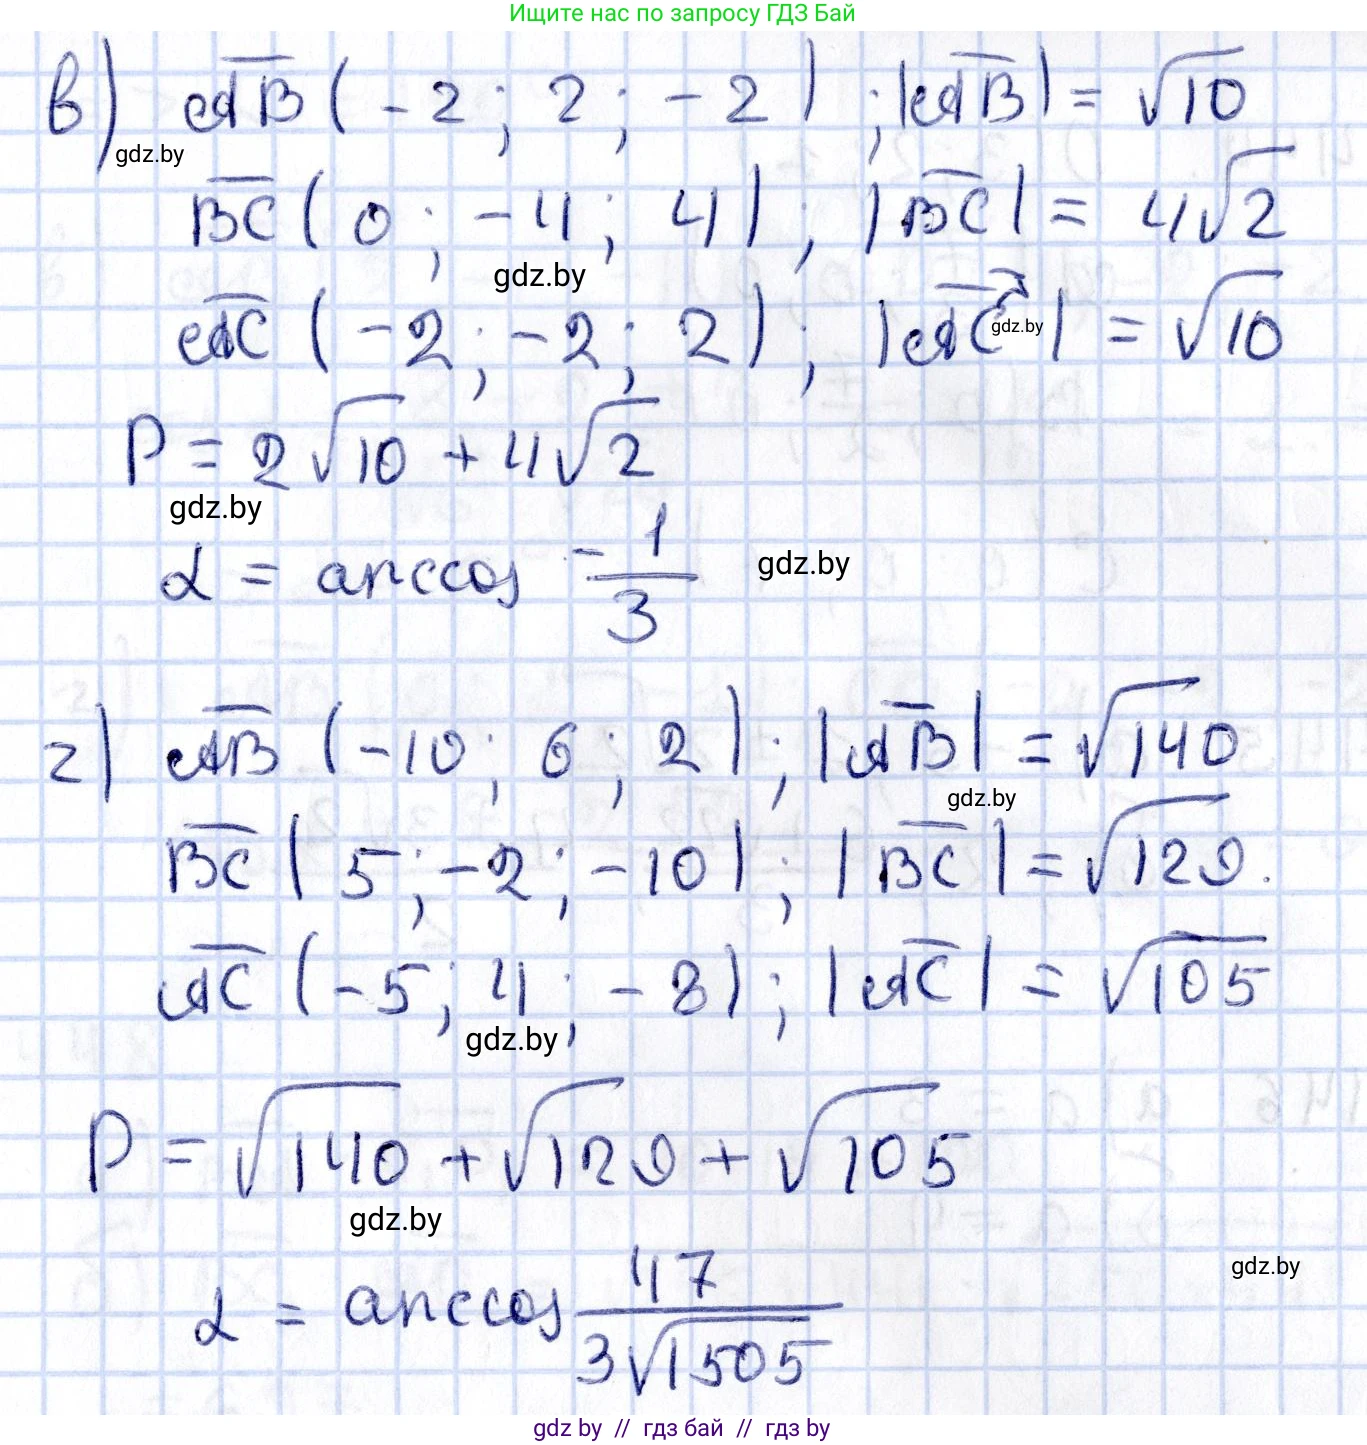 Ищите нас по запросу ГДЗ Бай
в) AB (-2; 2; -2) ; |AB| = √10
gdz.by
BC (0; -4; 4) ; |BC| = 4√2
gdz.by
AC (-2; -2; 2) ; |AC| = √10
gdz.by
P = 2√10 + 4√2
gdz.by
α = arccos -1/3
gdz.by
г) AB (-10; 6; 2) ; |AB| = √140
gdz.by
BC (5; -2; -10) ; |BC| = √129.
AC (-5; 4; -8) ; |AC| = √105
gdz.by
P = √140 + √129 + √105
gdz.by
gdz.by
α = arccos 47/3√1505
gdz.by // гдз бай // gdz.by